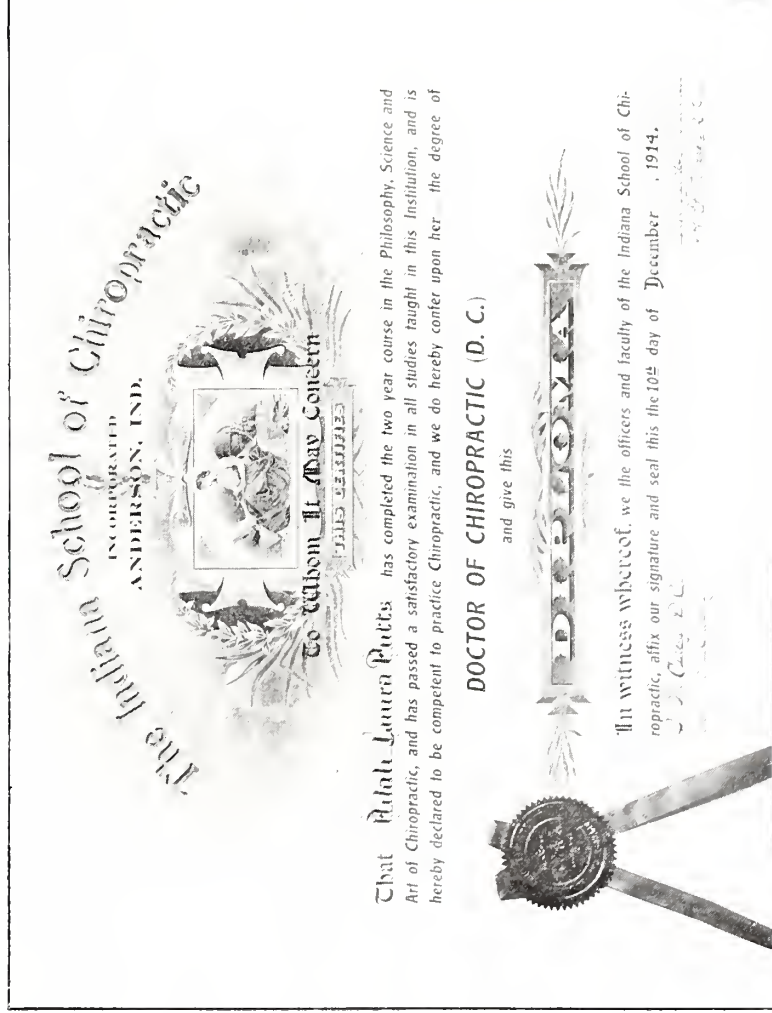 The Indiana School of Chiropractic
INCORPORATED
ANDERSON, IND.
To Whom It May Concern
THIS CERTIFIES
That Laura Putts has completed the two year course in the Philosophy, Science and
Art of Chiropractic, and has passed a satisfactory examination in all studies taught in this Institution, and is
hereby declared to be competent to practice Chiropractic, and we do hereby confer upon her the degree of
DOCTOR OF CHIROPRACTIC (D. C.)
and give this
DIPLOMA
In witness whereof, we the officers and faculty of the Indiana School of Chi-
ropractic, affix our signature and seal this the 10th day of December , 1914.